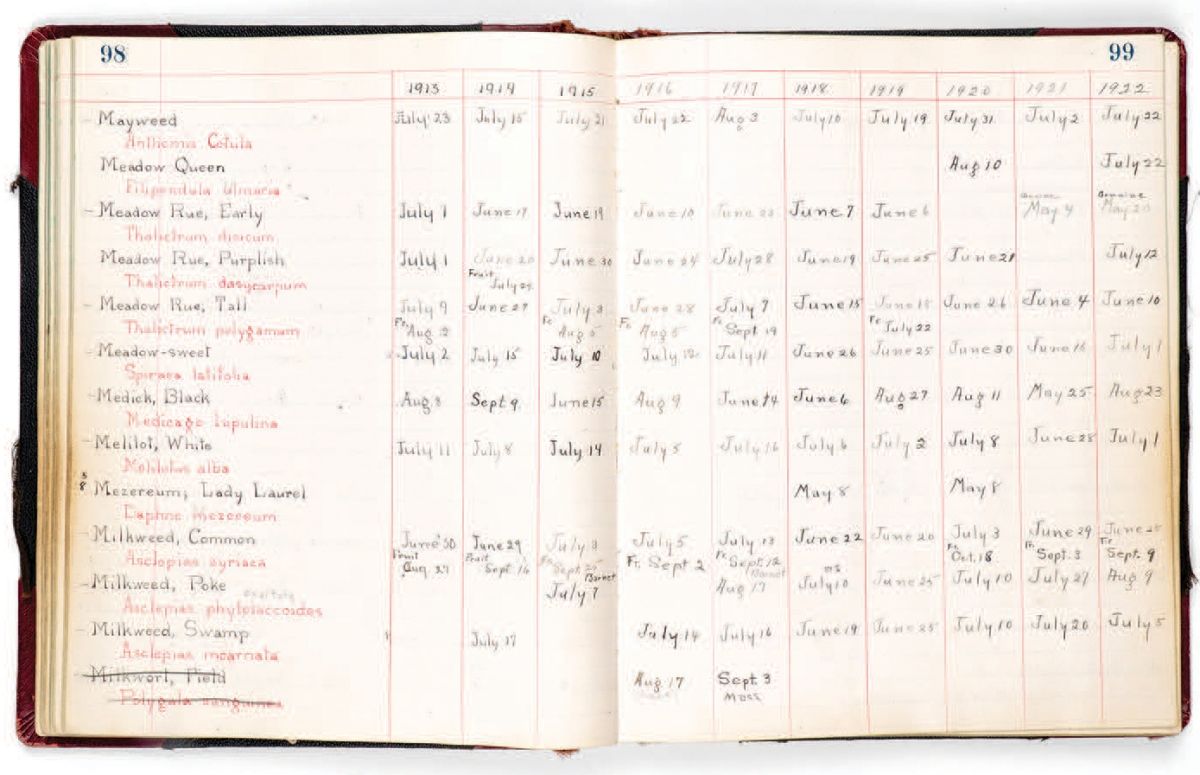 98 99
1913 1914 1915 1916 1917 1918 1919 1920 1921 1922
Mayweed July 23 July 15 July 21 July 22 Aug 3 July 10 July 19 July 31 July 2 July 22
Anthemis Cotula
Meadow Queen Aug 10 July 22
Filipendula Ulmaria
Meadow Rue, Early July 1 June 17 June 19 June 10 June 23 June 7 June 6 May 4 May 20
Thalictrum dioicum
Meadow Rue, Purplish July 1 June 20 June 30 June 24 July 28 June 19 June 25 June 21 July 12
Thalictrum dasycarpum Fruit July 29
Meadow Rue, Tall July 9 June 27 July 3 June 28 July 7 June 15 June 18 June 26 June 4 June 10
Thalictrum polygamum Fr. Aug 12 Fr. Aug 5 Fr. Aug 5 Fr. Sept 19 Fr. July 22
Meadow-sweet July 2 July 15 July 10 July 12 July 11 June 26 June 25 June 30 June 16 July 1
Spiraea latifolia
Medick, Black Aug 8 Sept 9 June 15 Aug 9 June 14 June 6 Aug 27 Aug 11 May 25 Aug 23
Medicago lupulina
Melilot, White July 11 July 8 July 14 July 5 July 16 July 6 July 2 July 8 June 28 July 1
Melilotus alba
Mezereum; Lady Laurel May 8 May 8
Daphne mezereum
Milkweed, Common June 30 June 29 July 3 July 5 July 13 June 22 June 20 July 3 June 29 June 25
Asclepias syriaca Fruit Aug. 27 Fruit Sept 16 Fr. Sept 25 Fr. Sept 2 Fr. Sept. 12 Fr. Oct. 18 Fr. Sept. 3 Fr. Sept. 9
Milkweed, Poke Barnet July 7 Barnet Aug 17 July 10 June 25 July 10 July 27 Aug 9
Asclepias phytolaccoides
Milkweed, Swamp July 17 July 14 July 16 June 19 June 25 July 10 July 20 July 5
Asclepias incarnata
Milkwort, Field Aug 17 Sept 3
Polygala sanguinea Mass